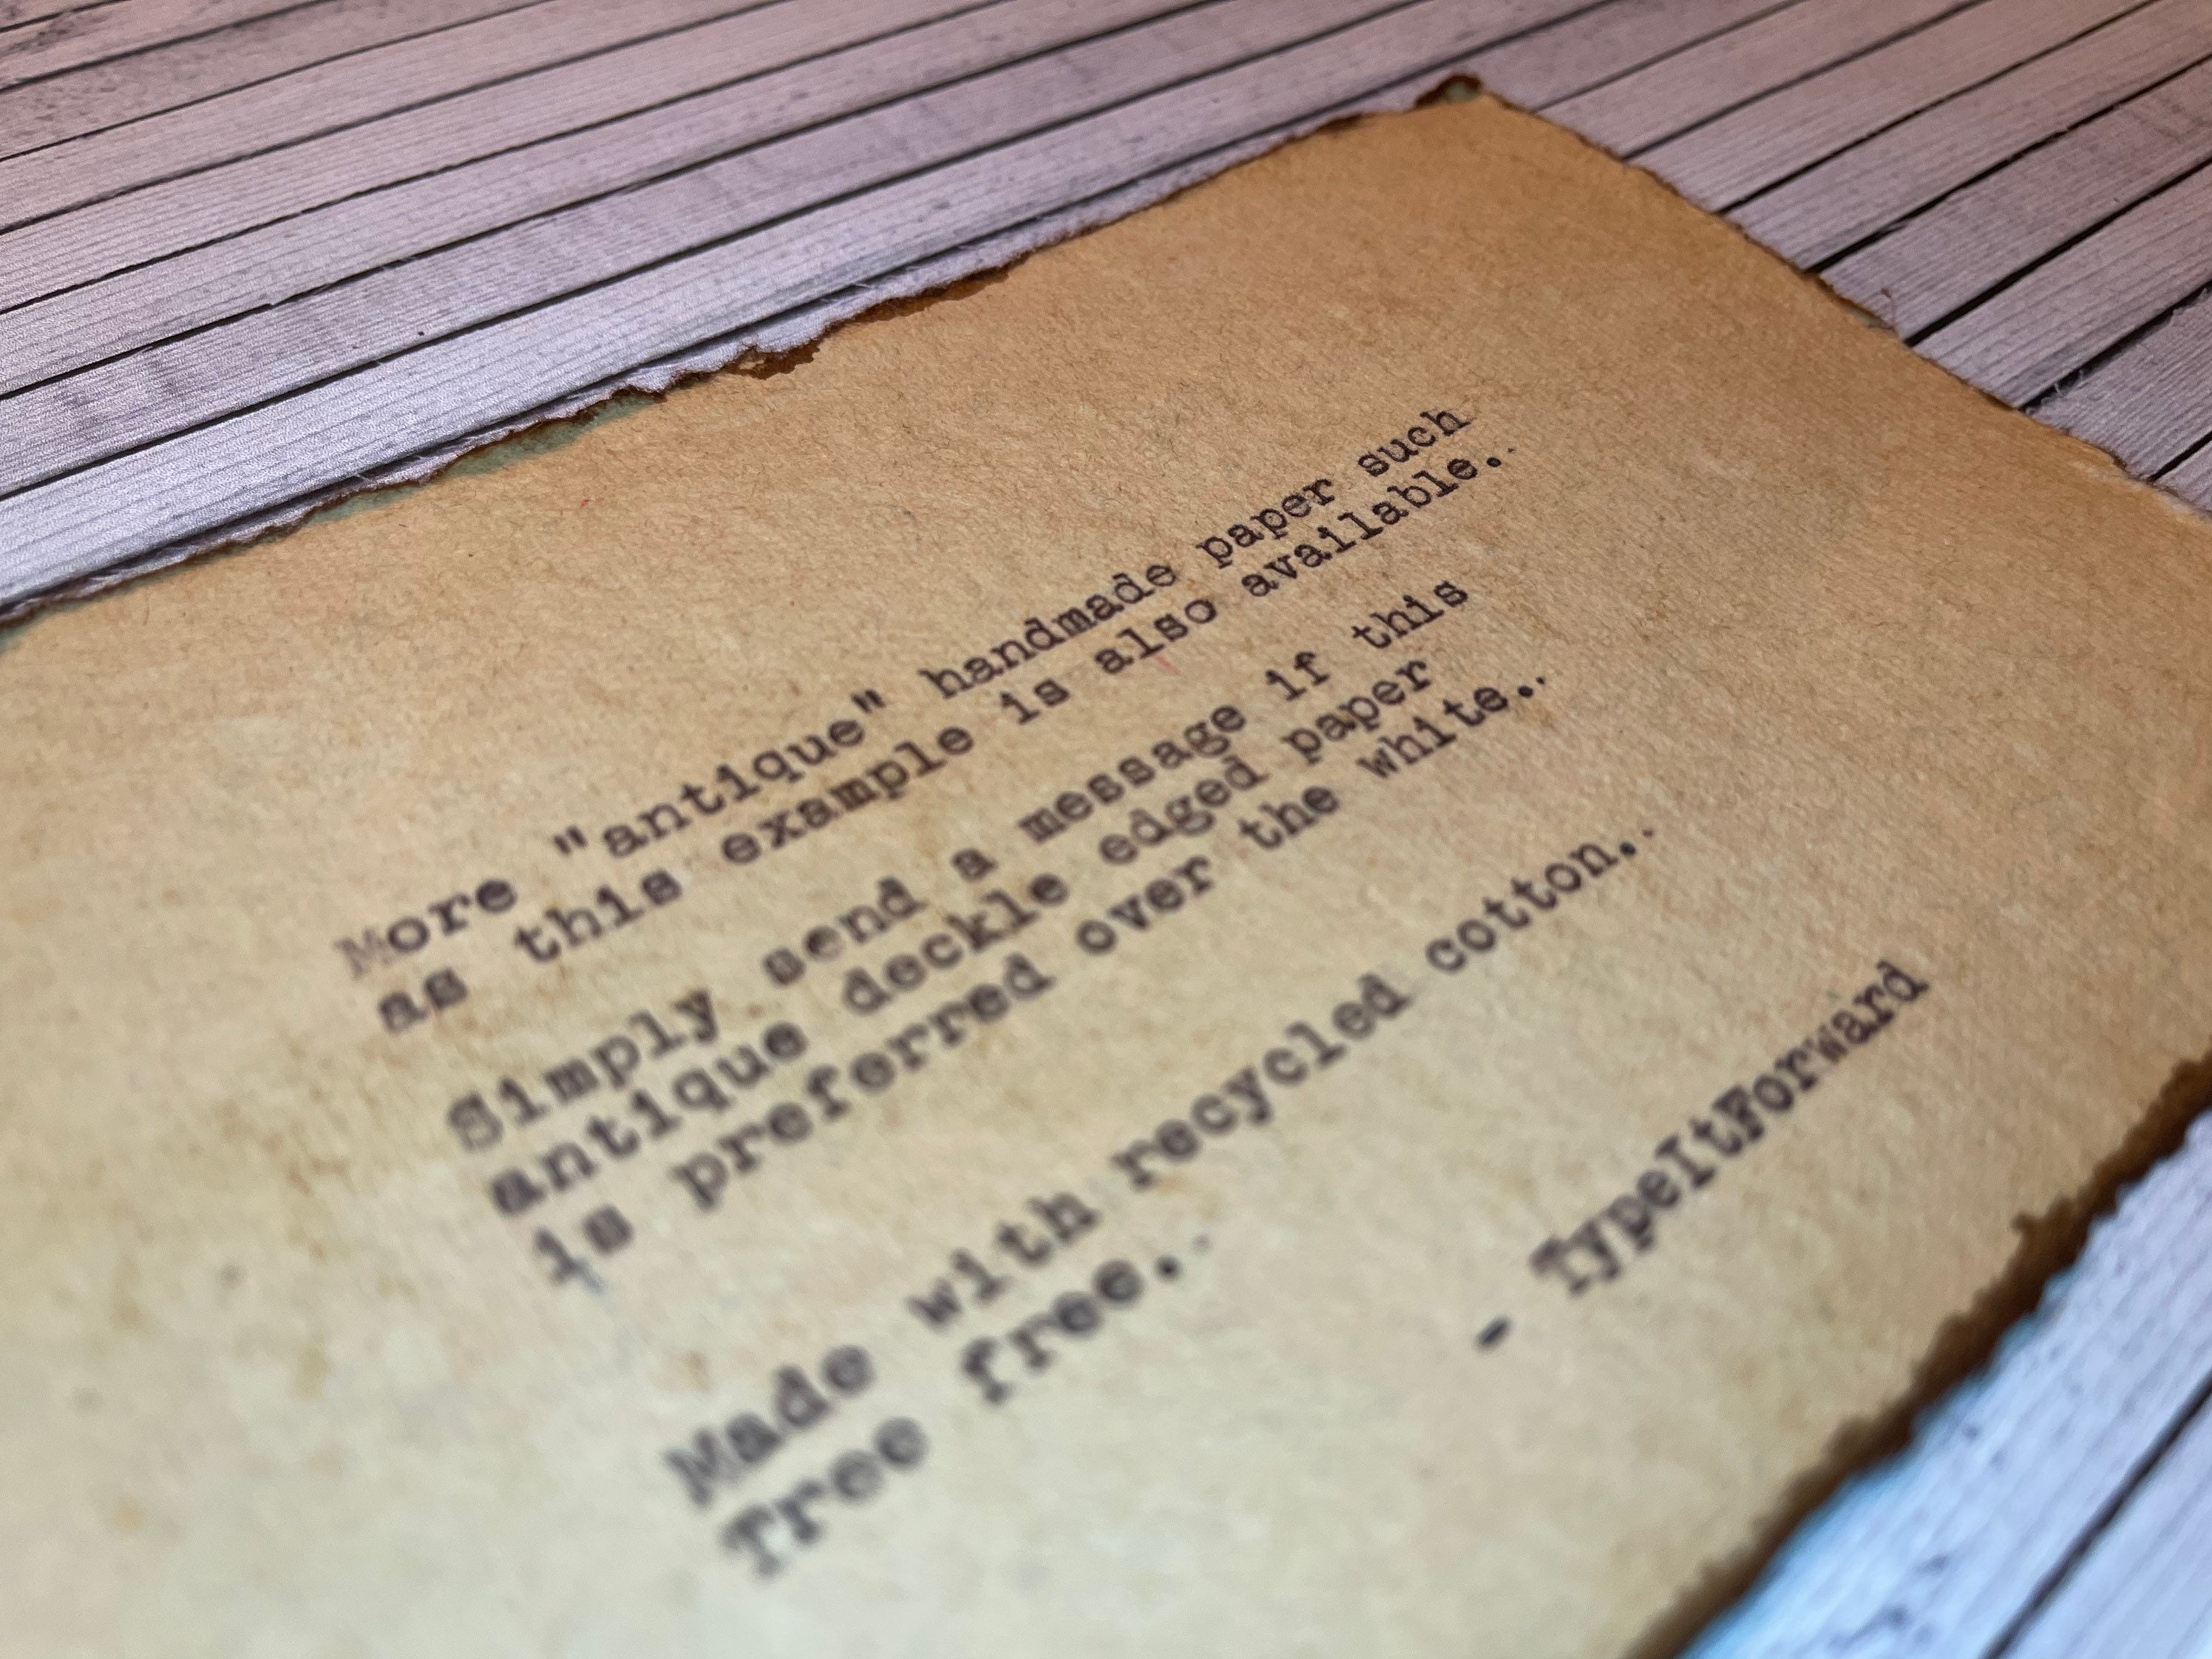 More "antique" handmade paper such
as this example is also available..
Simply send a message if this
antique deckle edged paper
is preferred over the white..
Made with recycled cotton..
Tree free..
- TypeItForward